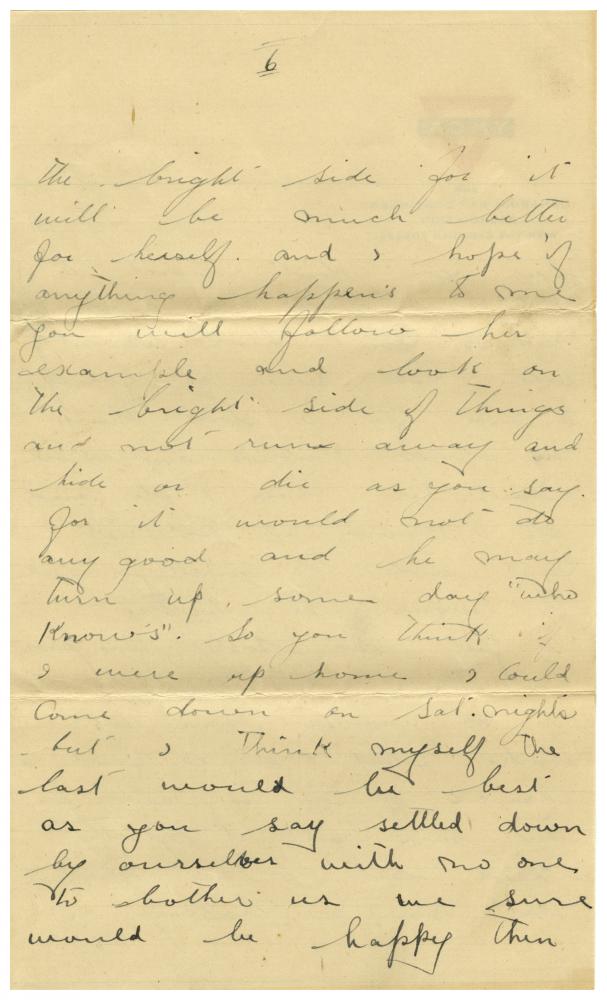 6
the bright side for it
will be much better
for herself. and I hope if
anything happen's to me
you will follow her
example and look on
the bright side of things
and not run away and
hide or die as you say.
for it would not do
any good and he may
turn up some day "who
Know's". So you think if
I were up home I could
come down on Sat. nights
but I think myself the
last would be best
as you say settled down
by ourselves with no one
to bother us we sure
would be happy then